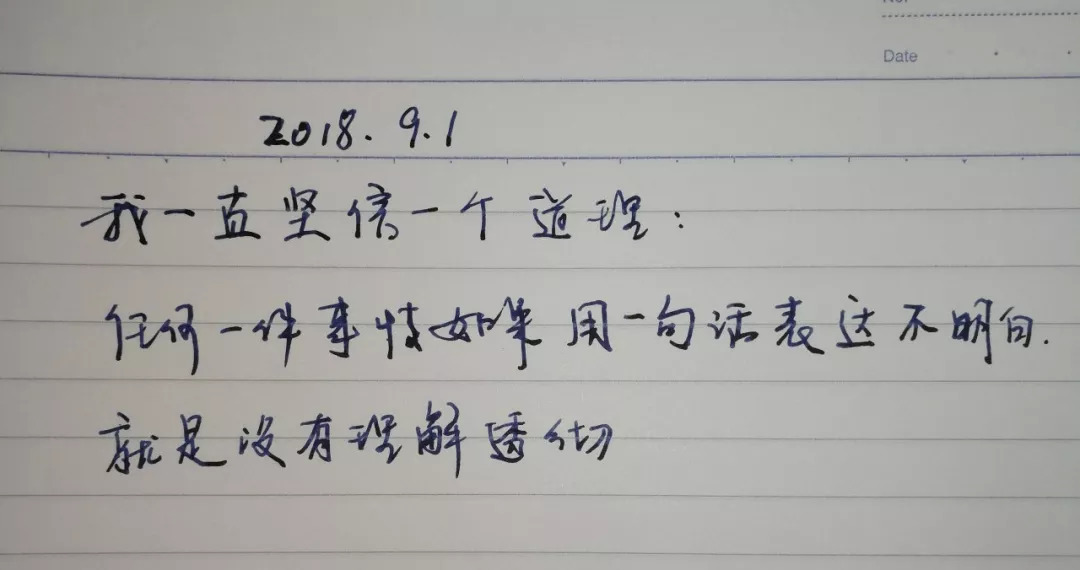 Date
2018.9.1
我一直坚信一个道理:
任何一件事情如果用一句话表达不明白.
就是没有理解透彻